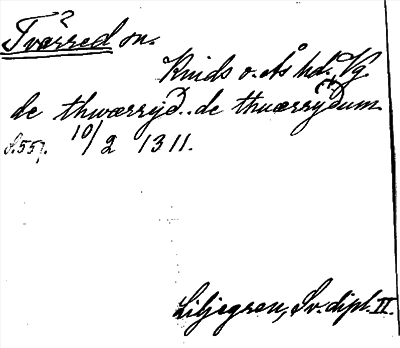 Tvärred sn.
Kinds o. Ås hd. Vg
de thwærryd.. de thuærrydum
S. 557. 10/2 1311.
Liljegren, Sv. dipl. II.